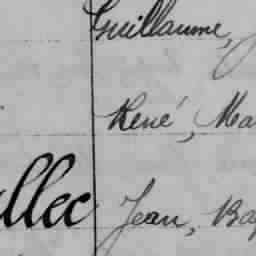 Guillaume,
René, Ma
llec Jean, Bap